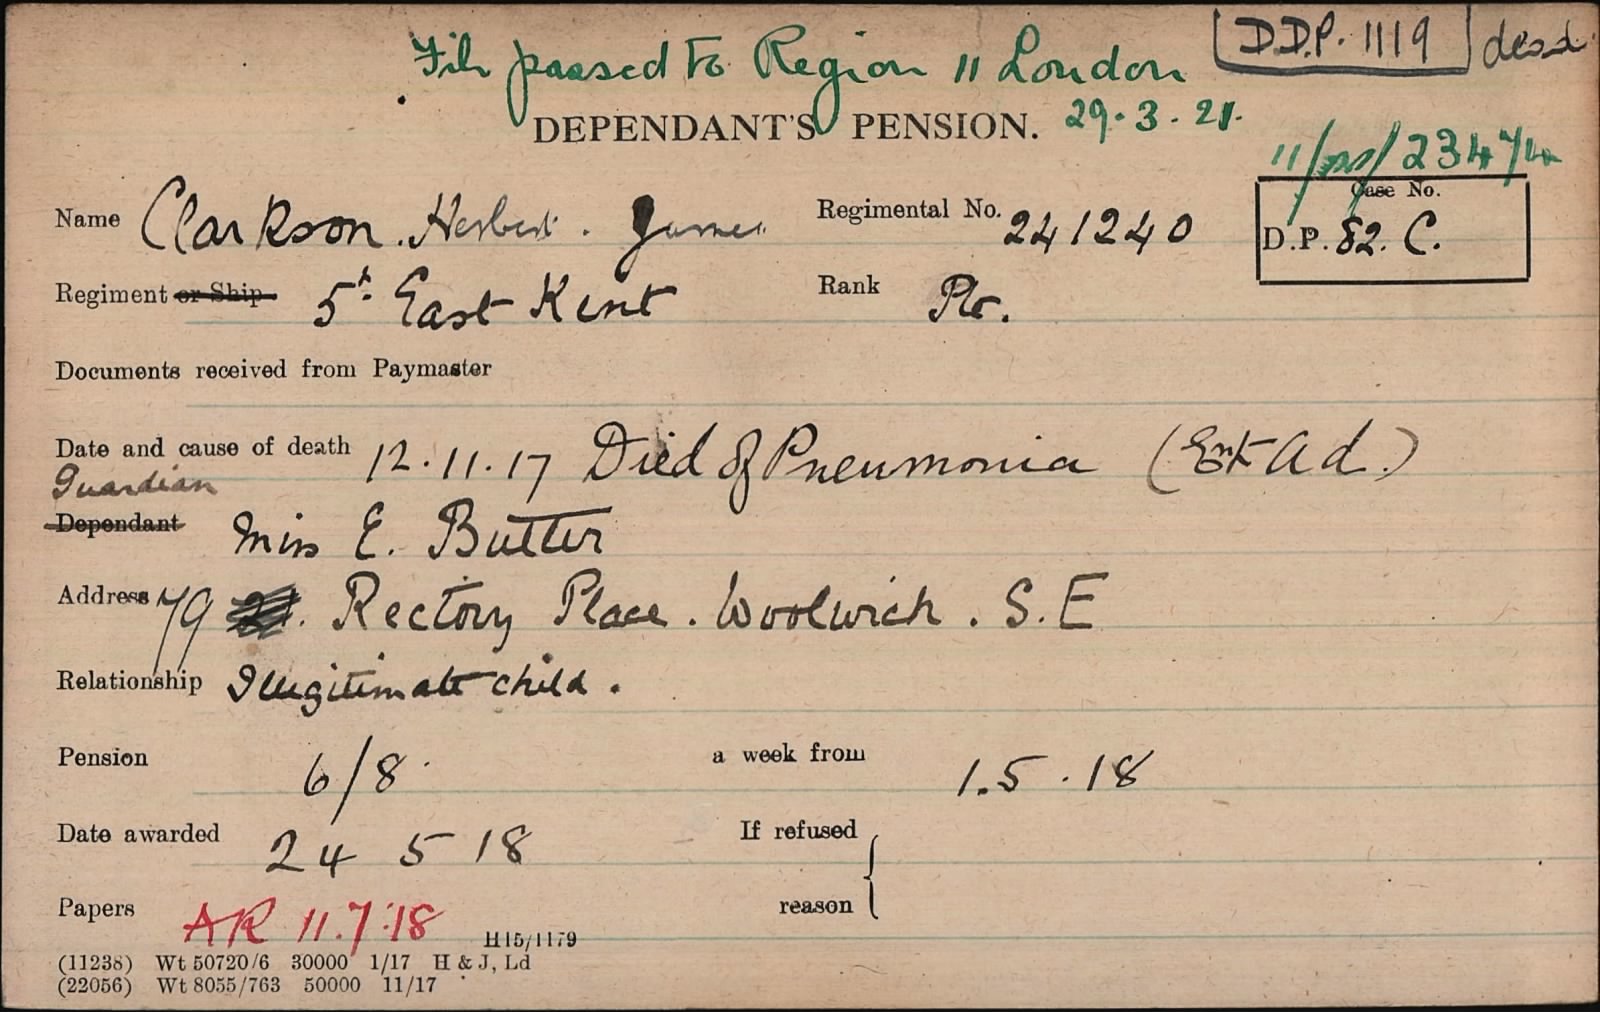 File passed to Region 11 London
D.D.P. 1119
DEPENDANT'S PENSION. 29.3.21.
11/ /23474
Case No.
D.P. 82. C.
Name Clarkson. Herbert. James
Regimental No. 241240
Regiment or Ship 5th East Kent
Rank Pte.
Documents received from Paymaster
Date and cause of death 12.11.17 Died of Pneumonia
Guardian
Dependant Miss E. Butter
Address 79 Rectory Place. Woolwich. S.E
Relationship Illegitimate child.
Pension 6/8 a week from 1.5.18
Date awarded 24 5 18 If refused
reason
Papers AR 11.7.18 H15/1179
(11238) Wt 50720/6 30000 1/17 H & J, Ld
(22056) Wt 8055/763 50000 11/17